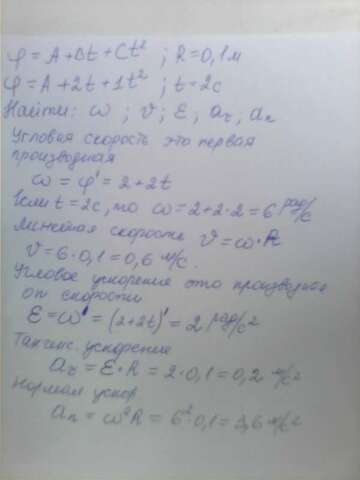 φ = A + Bt + Ct² ; R = 0,1 м
φ = A + 2t + 1t² ; t = 2c
Найти: ω ; v ; ε ; aτ ; an
Угловая скорость это первая
производная
ω = φ' = 2 + 2t
Если t = 2c, то ω = 2 + 2·2 = 6 рад/с
Линейная скорость v = ω·R
V = 6·0,1 = 0,6 м/с.
Угловое ускорение это производная
от скорости
ε = ω' = (2+2t)' = 2 рад/с²
Танген. ускорение
aτ = ε·R = 2·0,1 = 0,2 м/с²
Нормал ускор
an = ω²R = 6²·0,1 = 3,6 м/с²